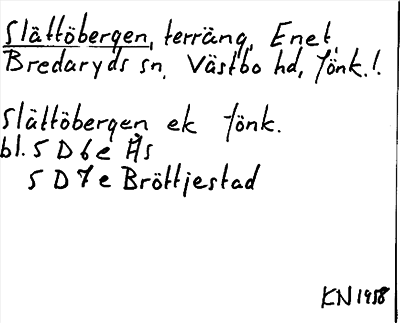 Slättöbergen, terräng, Enet,
Bredaryds sn, Västbo hd, Jönk.l.
Slättöbergen ek Jönk.
bl. 5 D 6 e Ås
5 D 7 e Bröttjestad
KN 1958